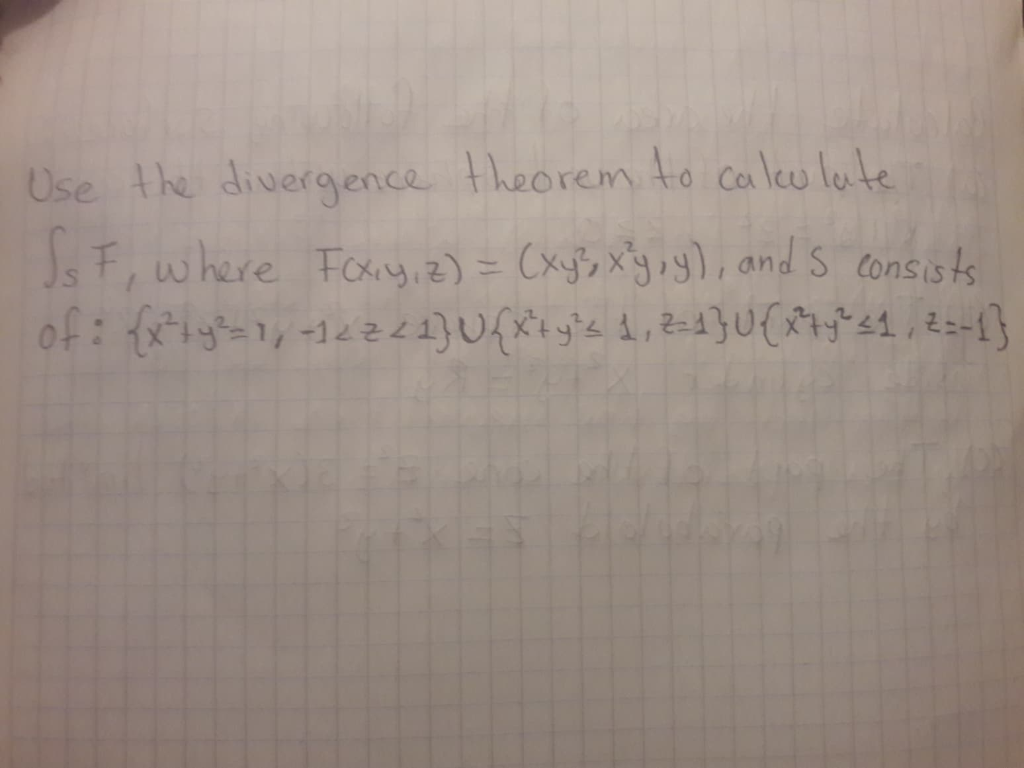 Use the divergence theorem to calculate
∫_S F, where F(x,y,z) = (xy², x²y, y), and S consists
of: {x²+y²=1, -1<z<1}∪{x²+y²≤1, z=1}∪{x²+y²≤1, z=-1}